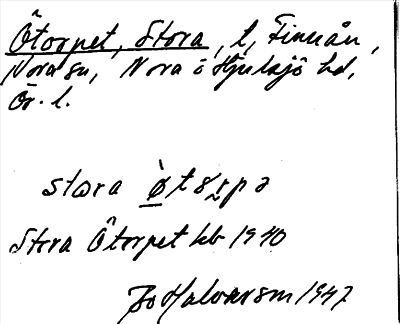 Ötorpet, Stora, l, Finnån,
Nora sn, Nora o Hjulsjö hd,
Ör. l.
stora ø̀tɤrpə
Stora Ötorpet hb 1940
Bo Halvarson 1947